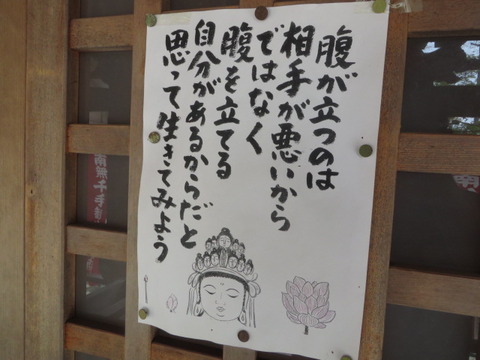 腹が立つのは
相手が悪いから
ではなく
腹を立てる
自分があるからだと
思って生きてみよう
南無千手